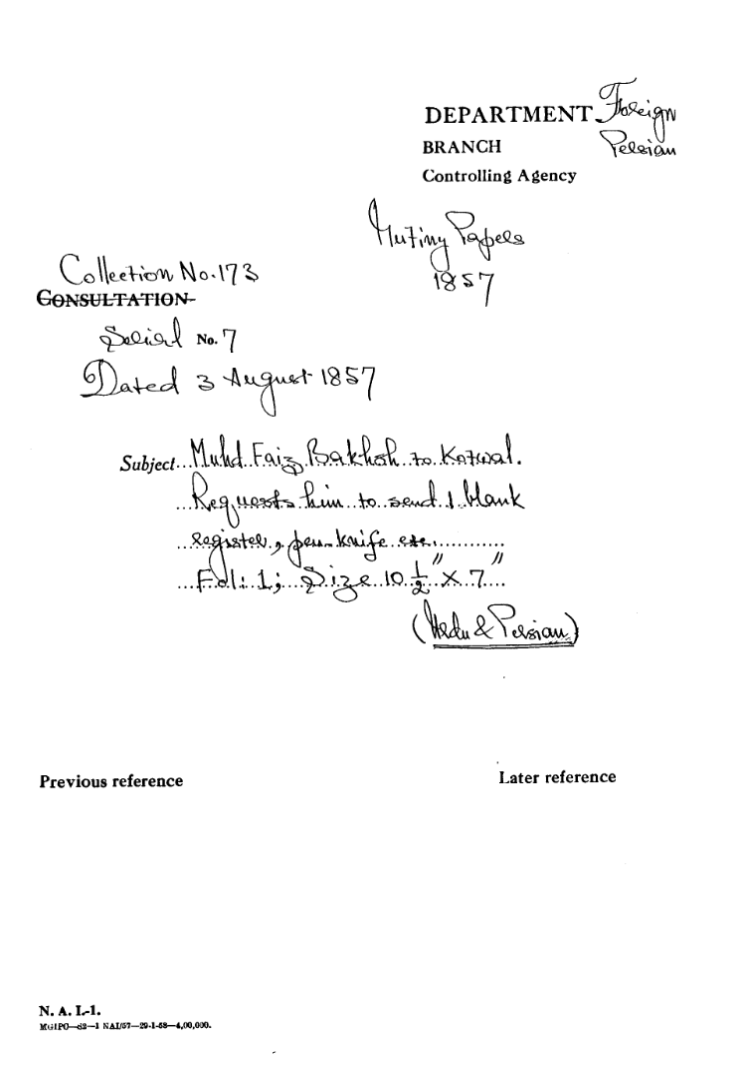 DEPARTMENT Foreign
BRANCH Persian
Controlling Agency
Mutiny Papers
1857
Collection No. 173
CONSULTATION
Serial No. 7
Dated 3 August 1857
Subject... Muhd. Faiz Bakhsh to Kotwal.
Requests him to send 1 blank
register, pen-knife etc.
Fol: 1; Size 10 1/2" x 7"
(Urdu & Persian)
Previous reference
Later reference
N. A. I.-1.
MGIPO—62—1 NAI/57—29-1-58—4,00,000.